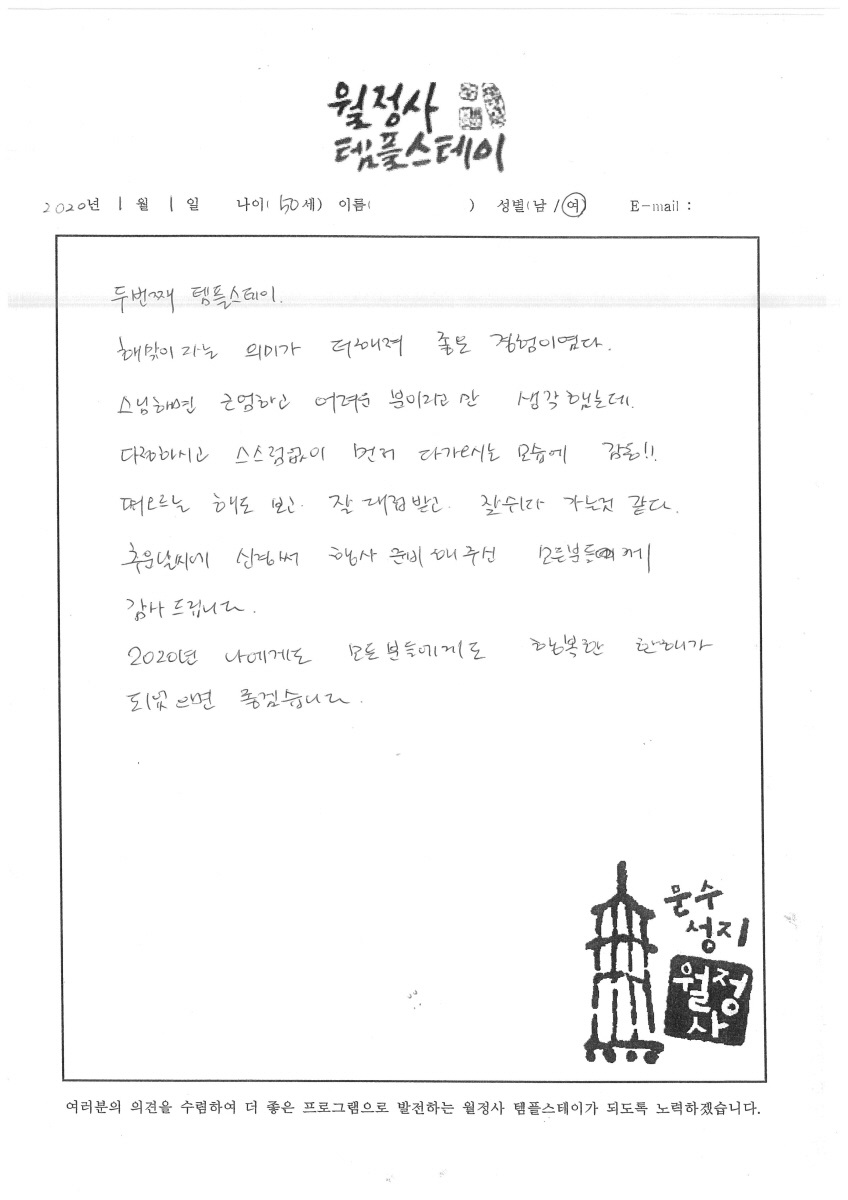 월정사
템플스테이
2020년 1 월 1 일 나이( 50세) 이름( ) 성별(남 /여) E-mail :
두번째 템플스테이.
해맞이라는 의미가 더해져 좋은 경험이였다.
스님하면 근엄하고 어려운 분이라고만 생각했는데.
다정하시고 스스럼없이 먼저 다가오시는 모습에 감동!!
떠오르는 해도 보고. 잘 대접받고. 잘쉬다 가는것 같다.
추운날씨에 신경써 행사 준비해주신 모든분들께
감사드립니다.
2020년 나에게도 모든분들에게도 행복한 한해가
되었으면 좋겠습니다.
문수
성지
월정
사
여러분의 의견을 수렴하여 더 좋은 프로그램으로 발전하는 월정사 템플스테이가 되도록 노력하겠습니다.